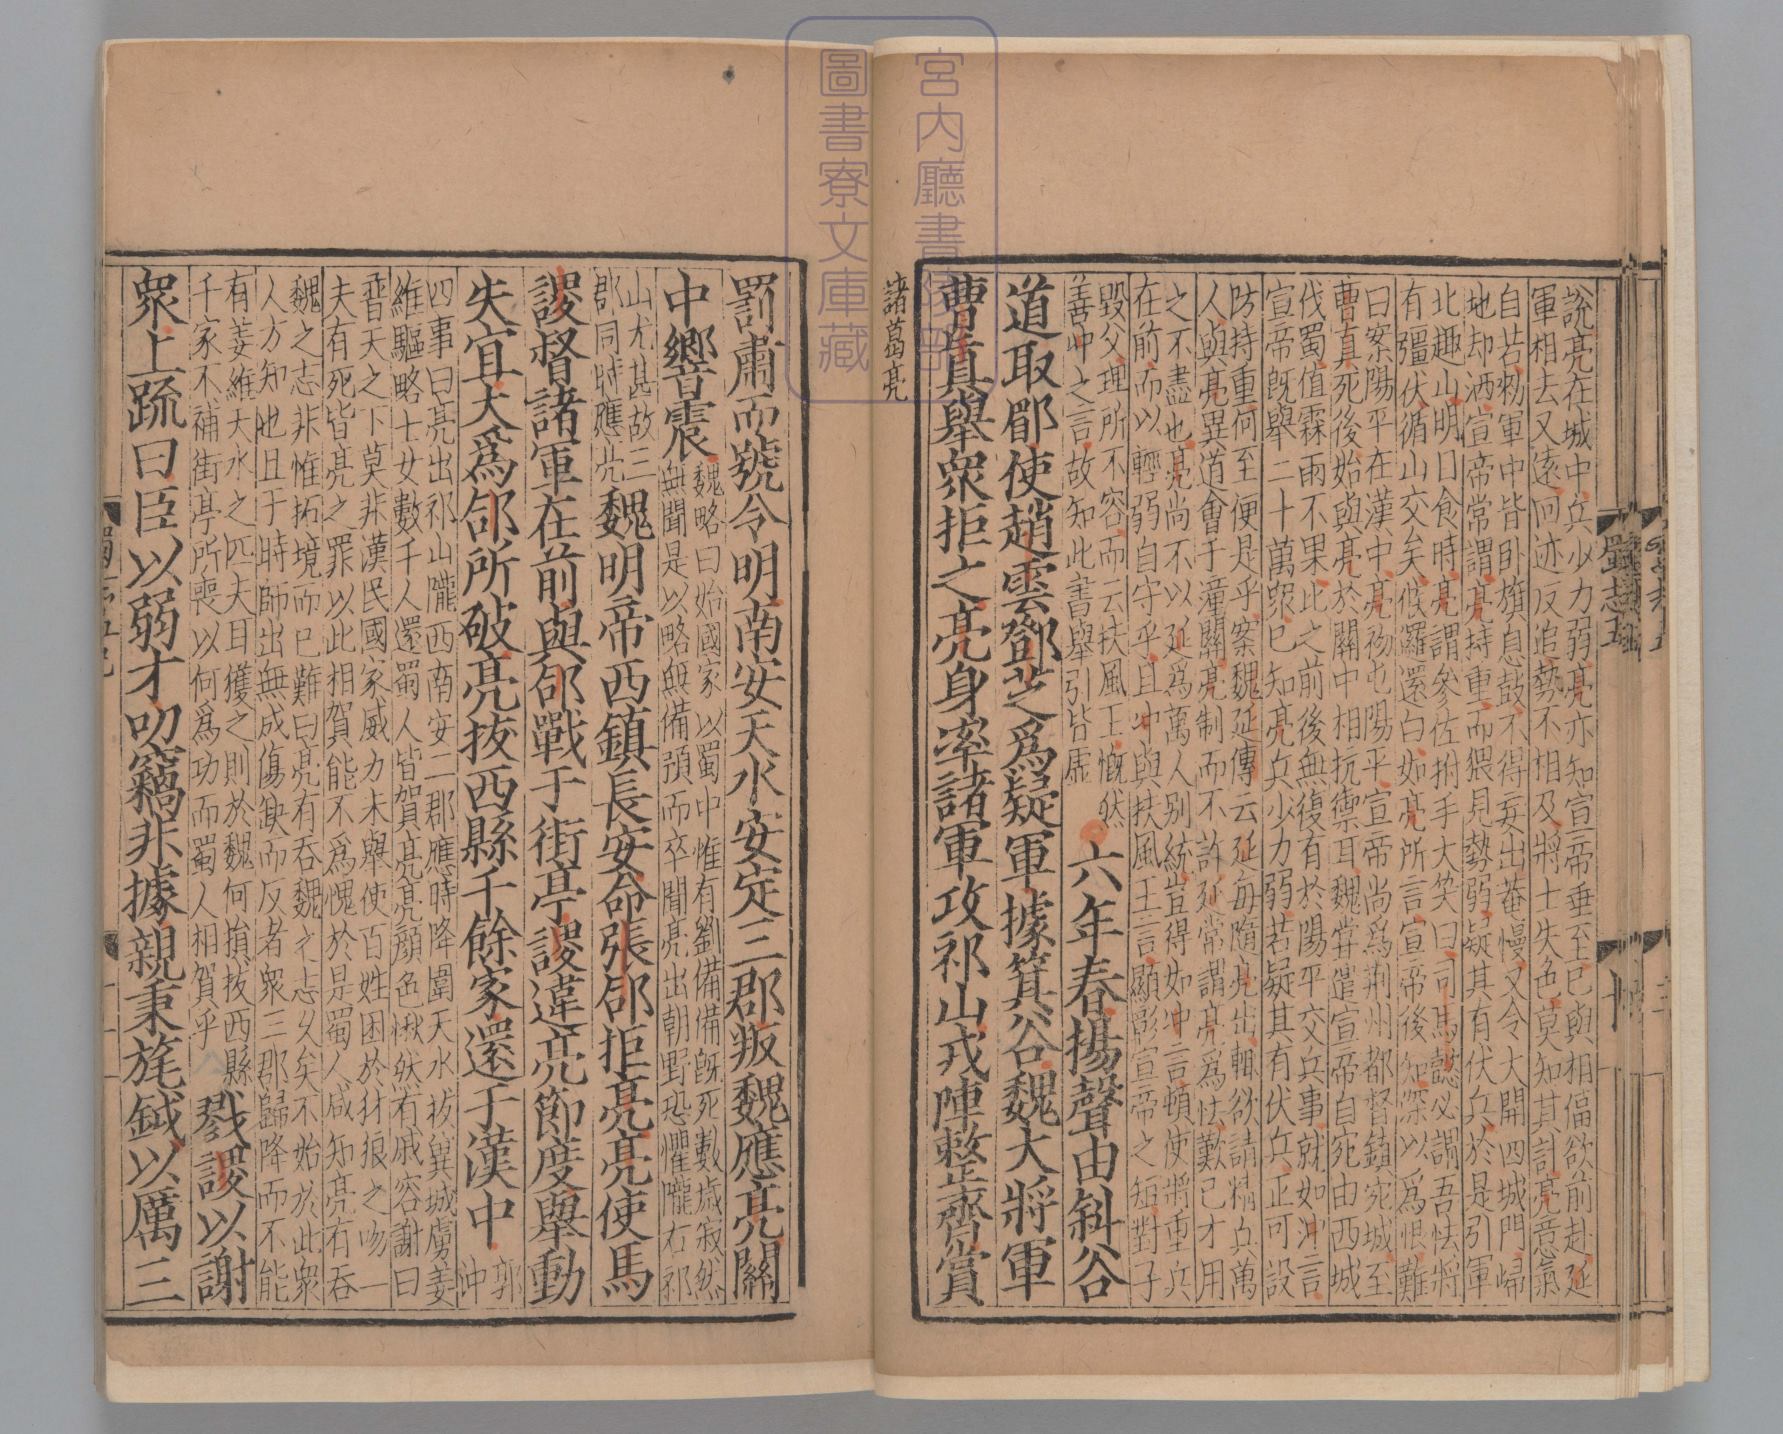 蜀志五
十
說亮在城中兵少力弱亮亦知宣帝垂至已與相偪欲前赴延
軍相去又遠回迹反追勢不相及將士失色莫知其計亮意氣
自若勑軍中皆卧旗息鼓不得妄出菴幔又令大開四城門埽
地却洒宣帝常謂亮持重而猥見勢弱疑其有伏兵於是引軍
北趣山明日食時亮謂參佐拊手大笑曰司馬懿必謂吾怯將
有彊伏循山交矣候邏還白如亮所言宣帝後知深以爲恨難
曰案陽平在漢中亮初屯陽平宣帝尚爲荆州都督鎮宛城至
曹真死後始與亮於關中相抗禦耳魏甞遣宣帝自宛由西城
伐蜀值霖雨不果此之前後無復有於陽平交兵事就如冲言
宣帝旣舉二十萬衆已知亮兵少力弱若疑其有伏兵正可設
防持重何至便走乎案魏延傳云延每隨亮出輒欲請精兵萬
人與亮異道會于潼關亮制而不許延常謂亮爲怯歎已才用
之不盡也亮尚不以延爲萬人别統豈得如冲言頓使將重兵
在前而以輕弱自守乎且冲與扶風王言顯彰宣帝之短對子
毀父理所不容而云扶風王慨然
善冲之言故知此書舉引皆虛
六年春揚聲由斜谷
道取郿使趙雲鄧芝爲疑軍據箕谷魏大將軍
曹真舉衆拒之亮身率諸軍攻祁山戎陣整齊賞
諸葛亮
宮内廳書陵部
圖書寮文庫藏
罰肅而號令明南安天水安定三郡叛魏應亮關
中響震
魏略曰始國家以蜀中惟有劉備備旣死數歲寂然
無聞是以略無備預而卒聞亮出朝野恐懼隴右祁
山尤甚故三
郡同時應亮
魏明帝西鎮長安命張郃拒亮亮使馬
謖督諸軍在前與郃戰于街亭謖違亮節度舉動
失宜大爲郃所破亮拔西縣千餘家還于漢中
郭
冲
四事曰亮出祁山隴西南安二郡應時降圍天水拔兾城虜姜
維驅略士女數千人還蜀人皆賀亮亮顏色愀然有戚容謝曰
普天之下莫非漢民國家威力未舉使百姓困於豺狼之吻一
夫有死皆亮之罪以此相賀能不爲愧於是蜀人咸知亮有吞
魏之志非惟拓境而已難曰亮有吞魏之志乆矣不始於此衆
人方知也且于時師出無成傷缺而反者衆三郡歸降而不能
有姜維天水之匹夫耳獲之則於魏何損拔西縣
千家不補街亭所喪以何爲功而蜀人相賀乎
戮謖以謝
衆上疏曰臣以弱才叨竊非據親秉旄鉞以厲三